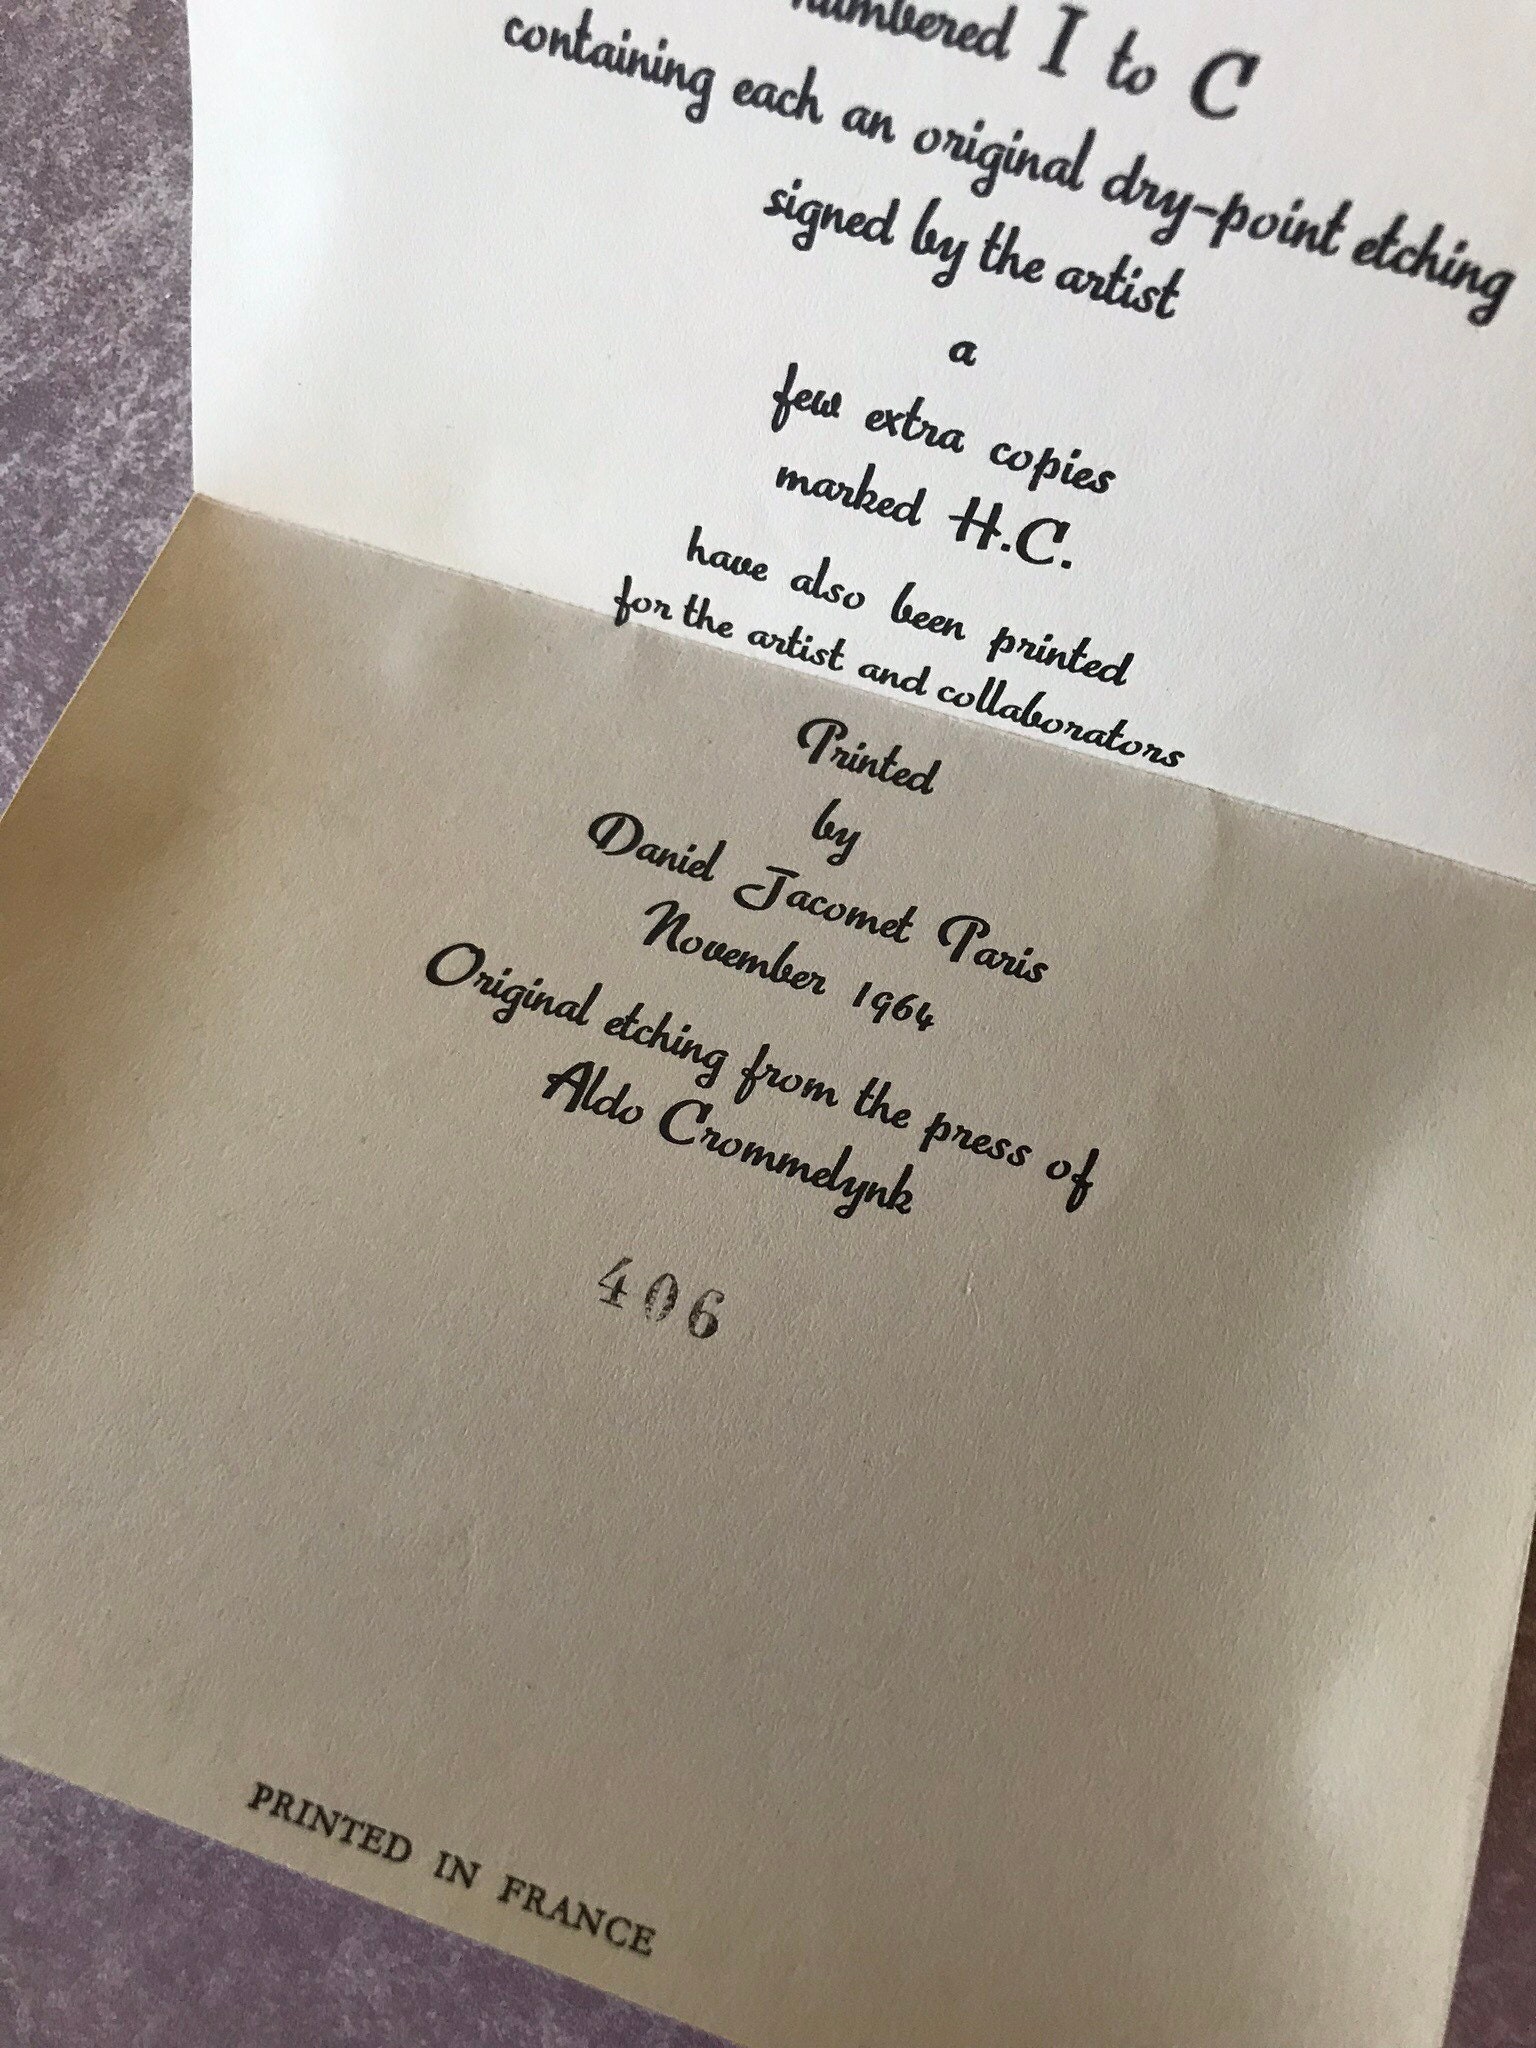 numbered I to C
containing each an original dry-point etching
signed by the artist
a
few extra copies
marked H.C.
have also been printed
for the artist and collaborators
Printed
by
Daniel Jacomet Paris
November 1964
Original etching from the press of
Aldo Crommelynk
406
PRINTED IN FRANCE